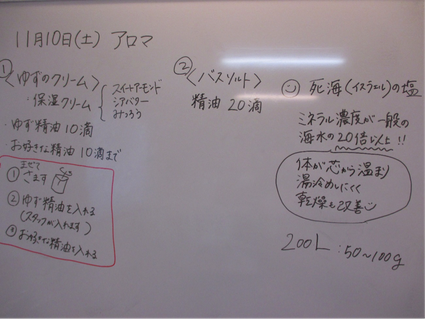 11月10日(土) アロマ
①
〈ゆずのクリーム〉
・保湿クリーム
スイートアーモンド
シアバター
みつろう
・ゆず精油10滴
・お好きな精油10滴まで
まぜて
① さます
② ゆず精油を入れる
(スタッフが入れます)
③ お好きな精油を入れる
②
〈バスソルト〉
精油 20滴
死海(イスラエル)の塩
ミネラル濃度が一般の
海水の20倍以上!!
体が芯から温まり
湯冷めしにくく
乾燥も改善
200L :50~100g